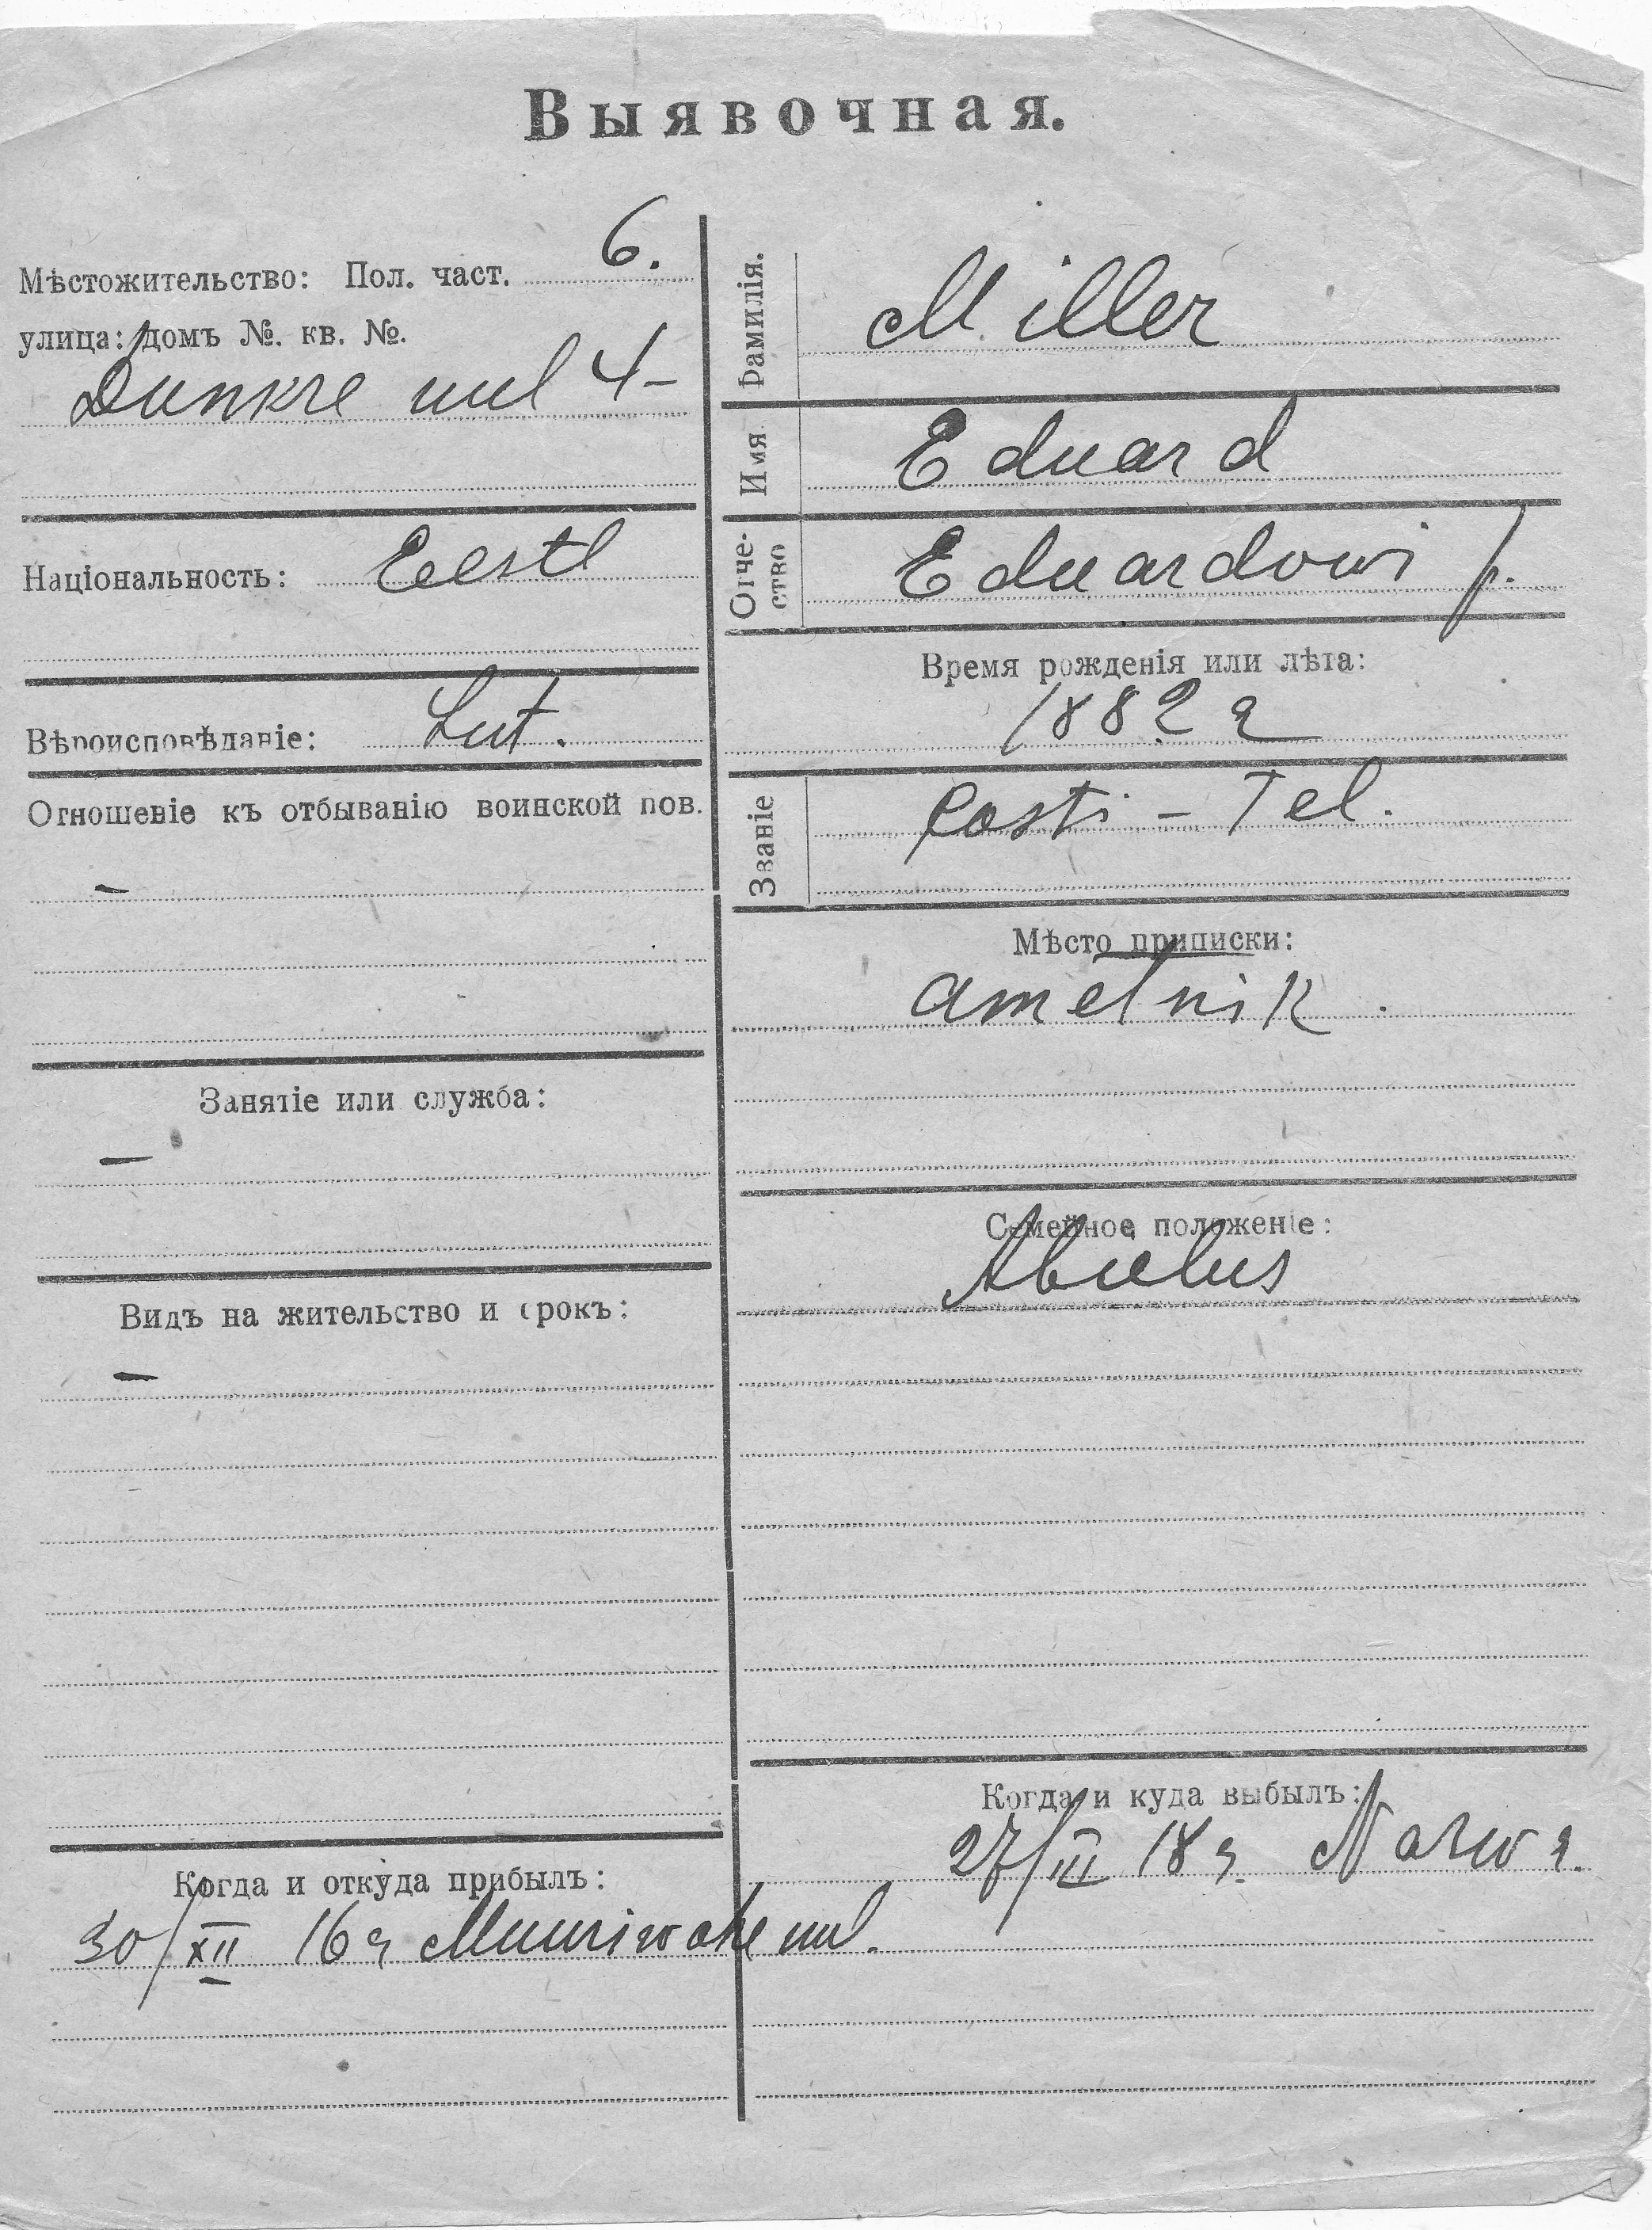 Выявочная.
6.
Мѣстожительство: Пол. част.
улица: домъ №. кв. №.
Dunkre uul 4-
Національность: Eestl
Вѣроисповѣданіе: Lut.
Отношеніе къ отбыванію воинской пов.
–
Занятіе или служба:
–
Видъ на жительство и срокъ:
–
Когда и откуда прибылъ:
30/XII 16 a Muuriwahe uul.
Фамилія. Miller
Имя Eduard
Отче-
ство Eduardowi p.
Время рожденія или лѣта:
1882 a
Званіе Posti - Tel.
Мѣсто приписки:
ametnik.
Семейное положеніе:
Abielus
Когда и куда выбылъ:
27/III 18 a. Narwa.